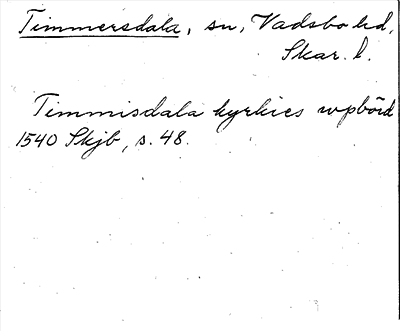 Timmersdala, sn, Vadsbo hd,
Skar. l.
Timmisdala kyrkies wpbörd
1540 Skjb, s. 48.